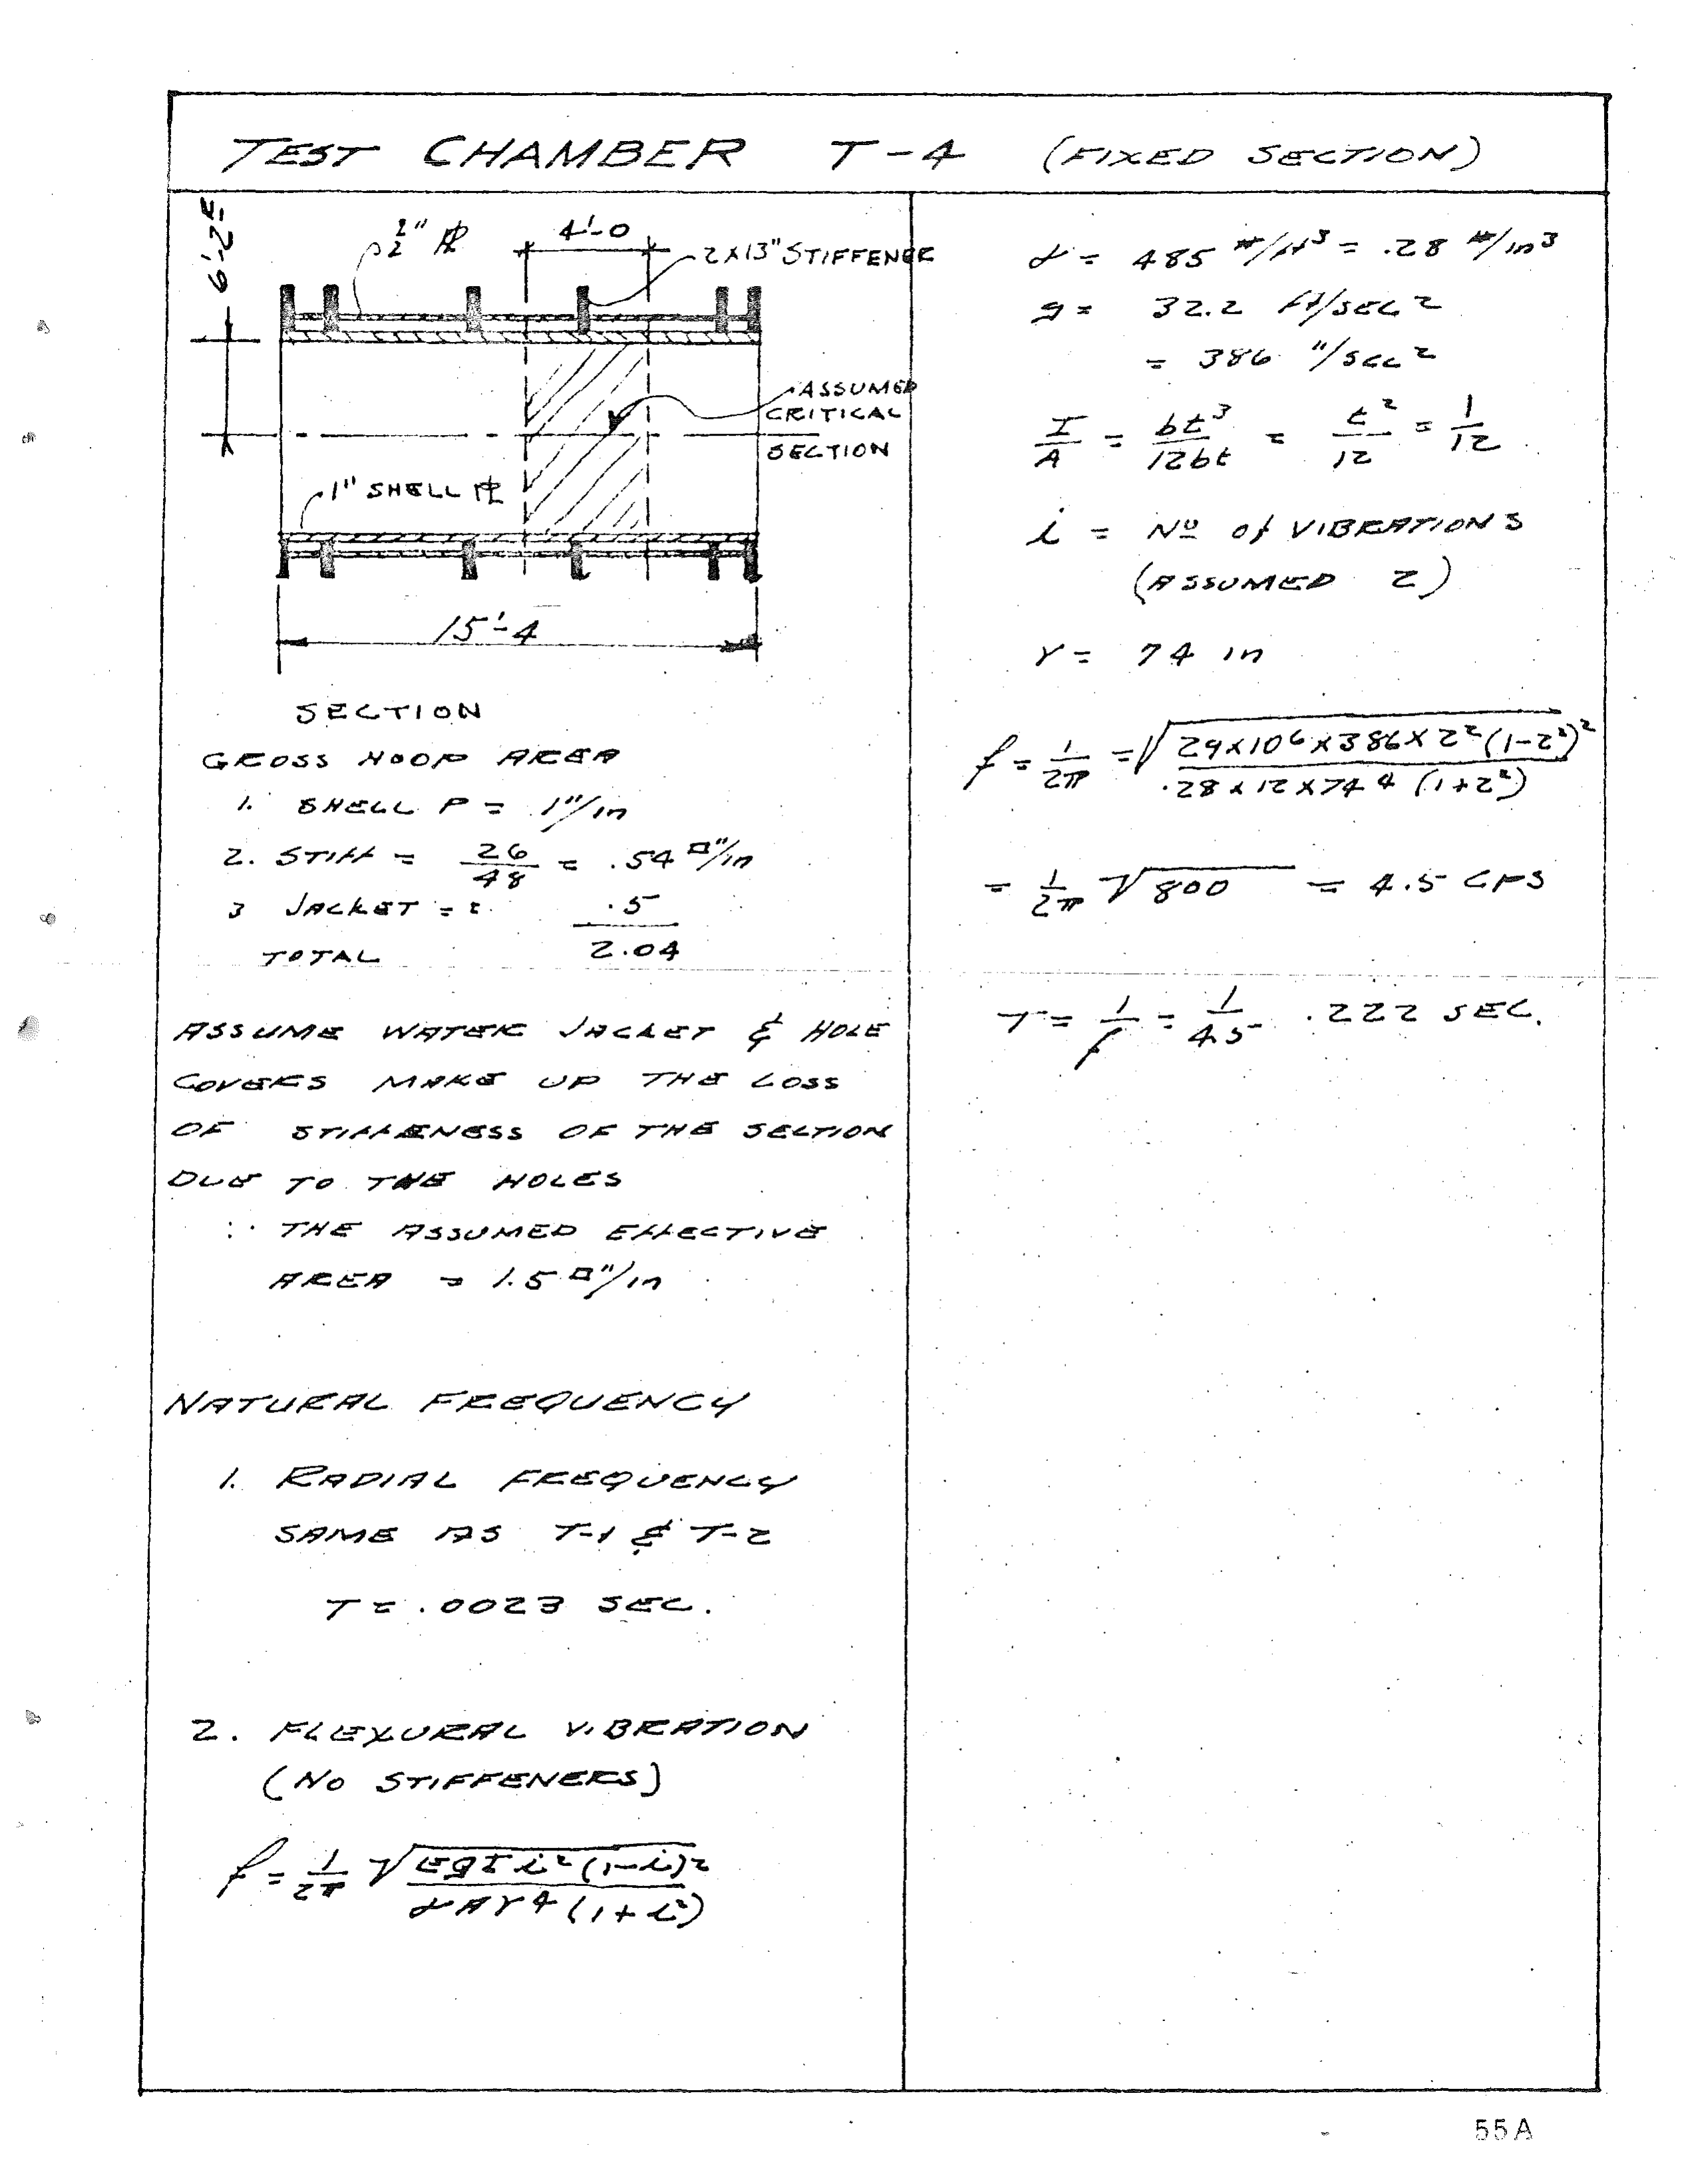 TEST CHAMBER T-4 (FIXED SECTION)
6'-2 R
1/2" PL
4'-0
2X13" STIFFENER
ASSUMED
CRITICAL
SECTION
1" SHELL PL
15'-4
SECTION
GROSS HOOP AREA
1. SHELL P = 1"/in
2. STIFF = 26/48 = .54 □"/in
3 JACKET = .5
TOTAL 2.04
ASSUME WATER JACKET & HOLE
COVERS MAKE UP THE LOSS
OF STIFFENESS OF THE SECTION
DUE TO THE HOLES
∴ THE ASSUMED EFFECTIVE
AREA = 1.5 □"/in
NATURAL FREQUENCY
1. RADIAL FREQUENCY
SAME AS T-1 & T-2
T = .0023 SEC.
2. FLEXURAL VIBRATION
(NO STIFFENERS)
f = 1/2π √ EgI i² (1-i)² / γAr4 (1+i²)
γ = 485 #/ft³ = .28 #/in³
g = 32.2 ft/SEC²
= 386 "/sec²
I/A = bt³/12bt = t²/12 = 1/12
i = Nº of VIBRATIONS
(ASSUMED 2)
r = 74 in
f = 1/2π = √ 29x106x386x2²(1-2²)² / .28x12x744 (1+2²)
= 1/2π √800 = 4.5 CPS
T = 1/f = 1/4.5 .222 SEC.
55A